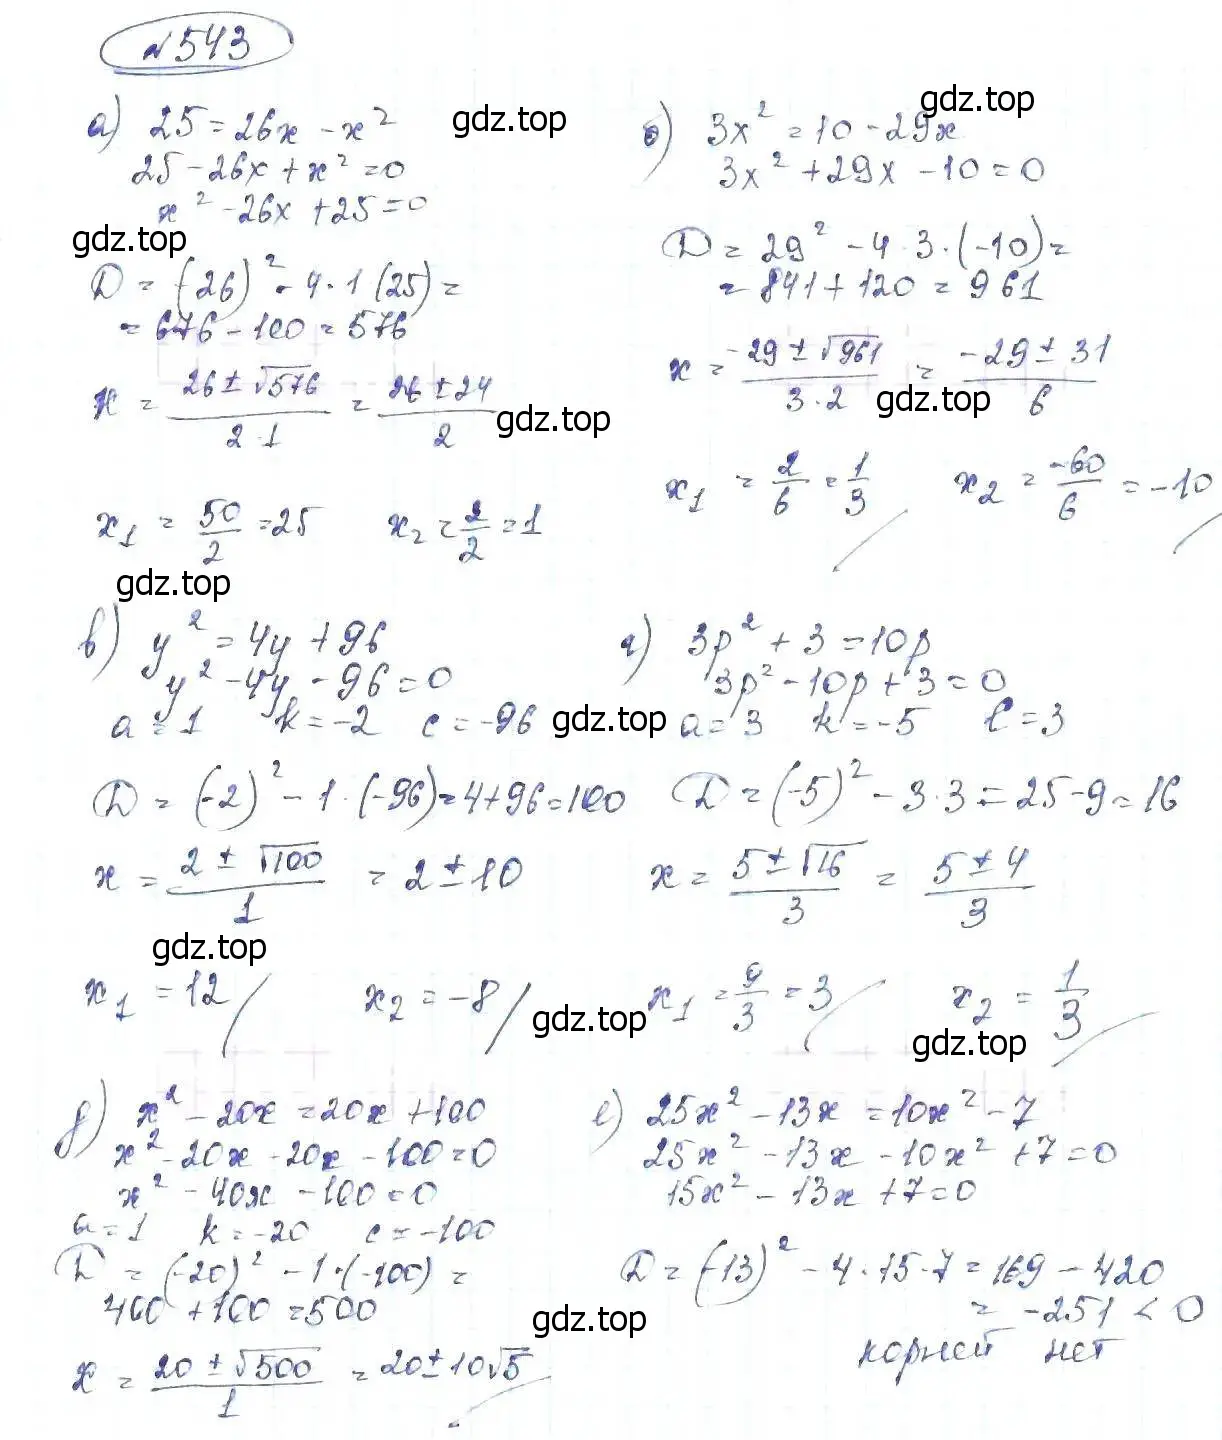 №543
а) 25 = 26x - x²
25 - 26x + x² = 0
x² - 26x + 25 = 0
gdz.top
D = (26)² - 4 · 1 (25) =
= 676 - 100 = 576
x = (26 ± √576)/(2·1) = (26 ± 24)/2
gdz.top
x₁ = 50/2 = 25 x₂ = 2/2 = 1
gdz.top
gdz.top
б) 3x² = 10 - 29x
3x² + 29x - 10 = 0
D = 29² - 4 · 3 · (-10) =
= 841 + 120 = 961
x = (-29 ± √961)/(3·2) = (-29 ± 31)/6
gdz.top
x₁ = 2/6 = 1/3 x₂ = -60/6 = -10
gdz.top
в) y² = 4y + 96
y² - 4y - 96 = 0
a = 1 k = -2 c = -96
gdz.top
D = (-2)² - 1 · (-96) = 4 + 96 = 100
x = (2 ± √100)/1 = 2 ± 10
gdz.top
x₁ = 12 x₂ = -8
gdz.top
г) 3p² + 3 = 10p
3p² - 10p + 3 = 0
a = 3 k = -5 c = 3
D = (-5)² - 3 · 3 = 25 - 9 = 16
x = (5 ± √16)/3 = (5 ± 4)/3
x₁ = 9/3 = 3 x₂ = 1/3
gdz.top
д) x² - 20x = 20x + 100
x² - 20x - 20x - 100 = 0
x² - 40x - 100 = 0
a = 1 k = -20 c = -100
D = (-20)² - 1 · (-100) =
400 + 100 = 500
gdz.top
x = (20 ± √500)/1 = 20 ± 10√5
е) 25x² - 13x = 10x² - 7
25x² - 13x - 10x² + 7 = 0
15x² - 13x + 7 = 0
D = (-13)² - 4 · 15 · 7 = 169 - 420
= -251 < 0
корней нет